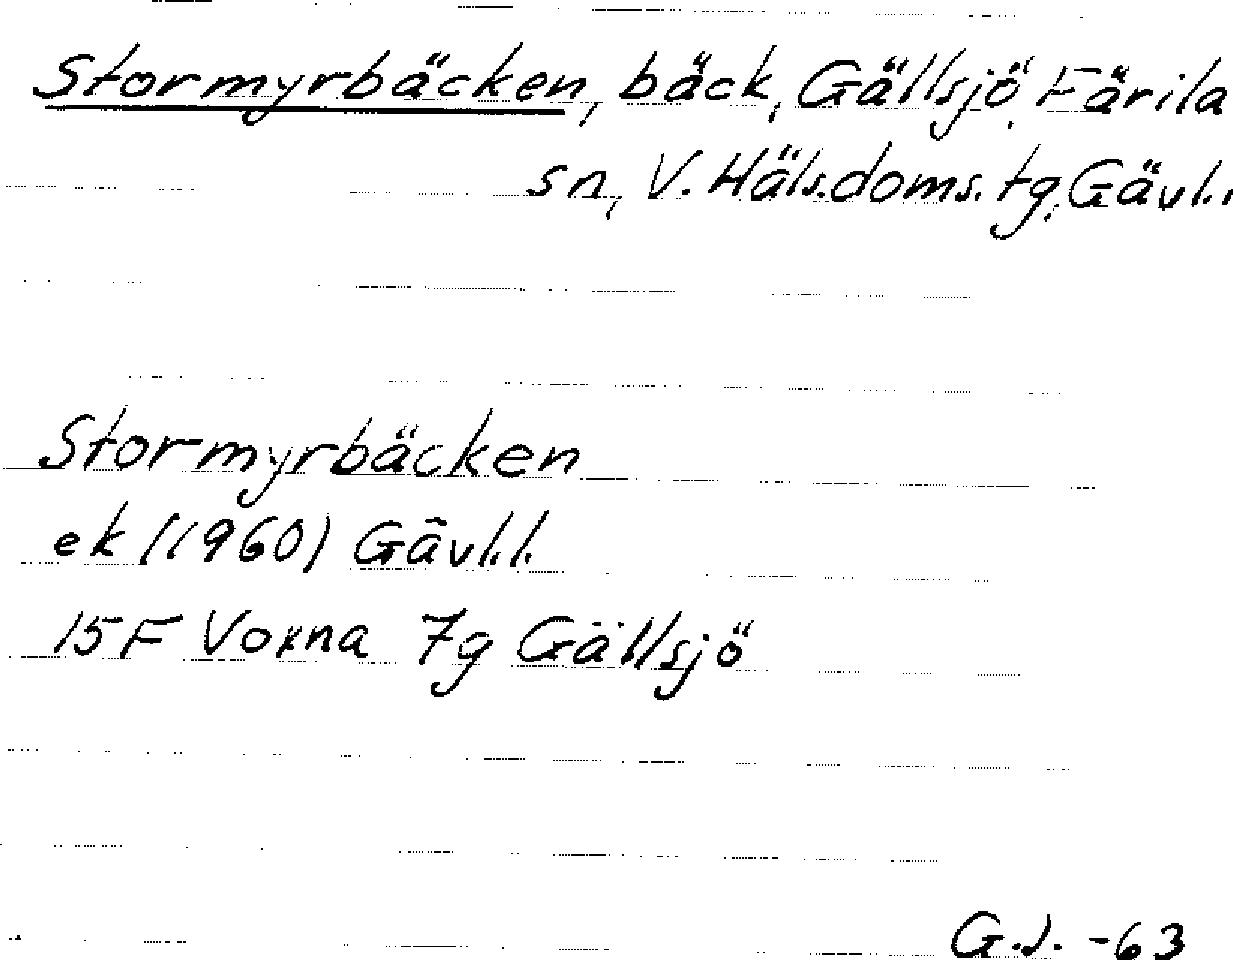 Stormyrbäcken, bäck, Gällsjö, Färila
sn, V. Häls.doms. tg, Gävl.l
Stormyrbäcken
ek (1960) Gävl.l.
15F Voxna 7g Gällsjö
G.J. -63